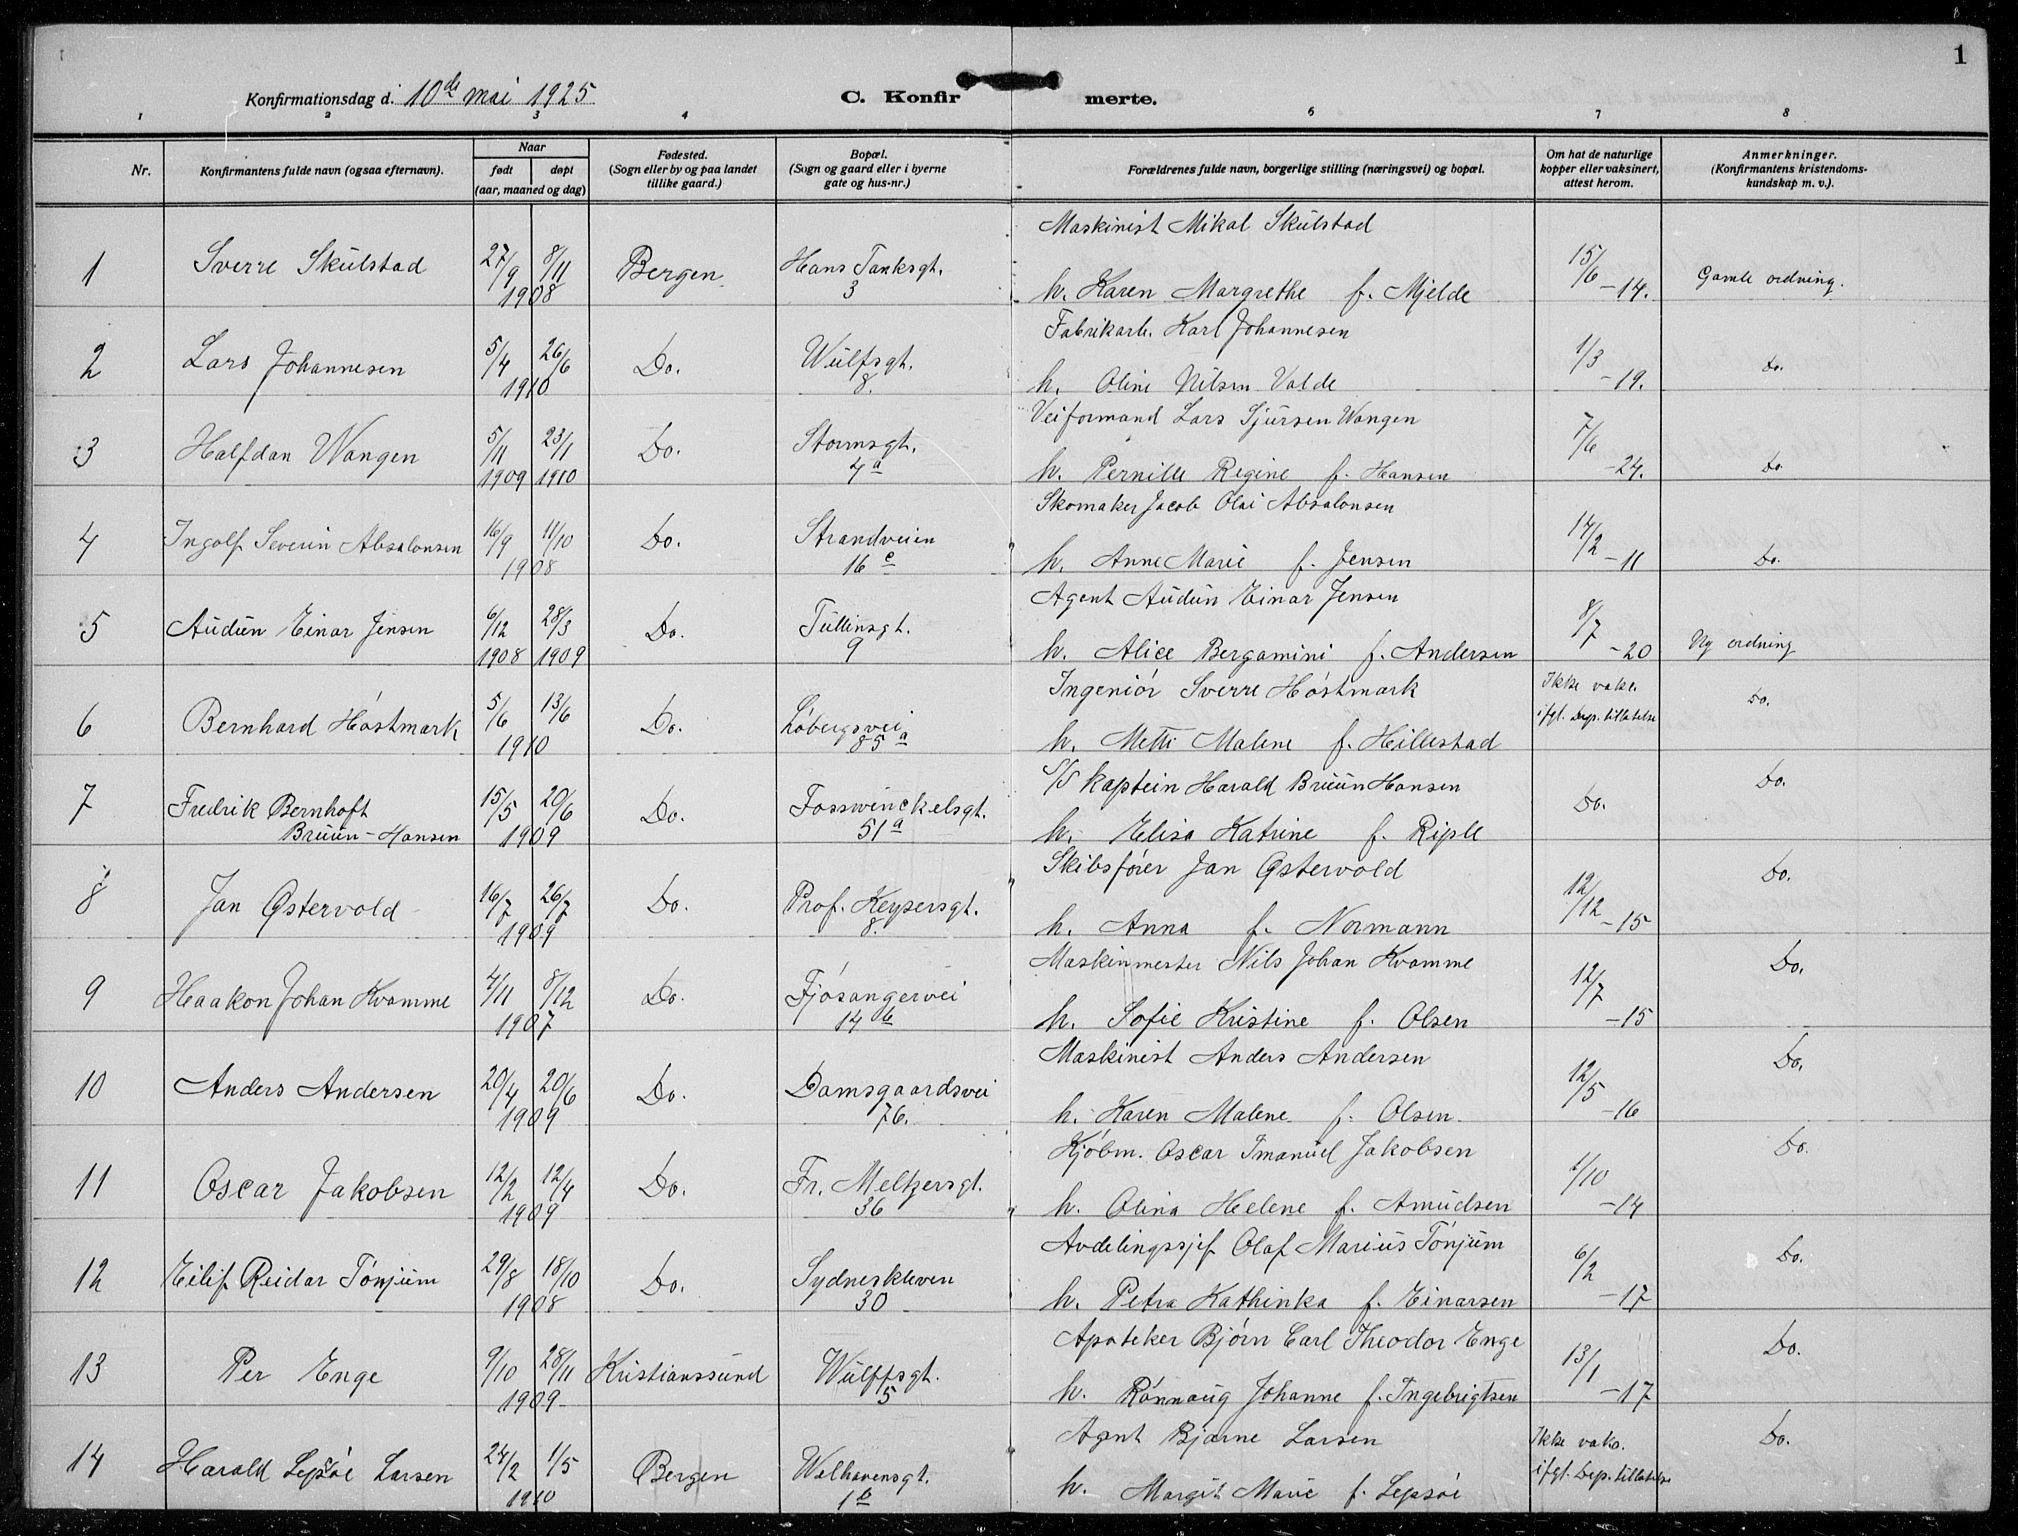 1
Konfirmationsdag d. 10de mai 1925
C. Konfir
merte.
1 2 3 4 6 7 8
Nr.
Konfirmantens fulde navn (ogsaa efternavn).
Naar
født døpt
(aar, maaned og dag)
Fødested.
(Sogn eller by og paa landet
tillike gaard.)
Bopæl.
(Sogn og gaard eller i byerne
gate og hus-nr.)
Forældrenes fulde navn, borgerlige stilling (næringsvei) og bopæl.
Om hat de naturlige
kopper eller vaksinert,
attest herom.
Anmerkninger.
(Konfirmantens kristendoms-
kundskap m. v.).
Maskinist Mikal Skulstad
1 Sverre Skulstad 27/9 8/11 Bergen. Hans Tanksgt. 15/6 Gamle ordning.
1908 3 h. Karen Margrethe f. Mjelde -14.
Fabrikarb. Karl Johannesen
2 Lars Johannesen 5/4 26/6 Do. Wulfsgt. 1/3 Do.
1910 8. h. Oline Nilsen Valde -19.
Veiformand Lars Sjursen Wangen
3 Halfdan Wangen 5/11 23/1 Do. Stormsgt. 7/6
1909 1910 4a h. Pernille Regine f. Hansen -24. Do
Skomaker Jacob Olai Absalonsen
4 Ingolf Severin Absalonsen 16/9 11/10 Do. Strandveien 14/2
1908 16c h. Anne Marie f. Jensen -11 Do.
Agent Audun Einar Jensen
5 Audun Einar Jensen 6/12 28/3 Do. Tullinsgt. 8/7 Ny ordning
1908 1909 9 h. Alice Bergamini f. Andersen -20
Ingeniór Sverre Hóstmark Ikke vaks.
6 Bernhard Hóstmark 5/6 13/6 Do. Lóbergsvei ifgl. Dep. tillatelse Do.
1910 85a h. Metti Malene f. Hillestad
S/S kaptein Harald Bruun Hansen Do.
7 Fredrik Bernhoft 15/5 20/6 Do. Fosswinckelsgt. Do.
Bruun-Hansen 1909 51a h. Elisa Katrine f. Riple
Skibsfóier Jan Østervold Do.
8 Jan Østervold 16/7 26/7 Do. Prof. Keysersgt. 12/12
1909 8. h. Anna f. Normann -15
Maskinmester Nils Johan Kvamme Do.
9 Haakon Johan Kvamme 4/11 8/12 Do. Fjósangervei 12/7
1907 14b h. Sofie Kristine f. Olsen -15
Maskinist Anders Andersen Do.
10 Anders Andersen 20/4 20/6 Do. Damsgaardsvei 12/5
1909 76. h. Karen Malene f. Olsen. -16
Kjóbm. Oscar Imanuel Jakobsen Do.
11 Oscar Jakobsen 12/2 12/4 Do. Fr. Meltzersgt. 1/10
1909 36 h. Olina Helene f. Amudsen -14
Avdelingssjef Olaf Marius Tónjum Do.
12 Eilif Reidar Tónjum 29/8 18/10 Do. Sydneskleven 6/2
1908 30 h. Petra Kathinka f. Einarsen -17
Apoteker Bjórn Carl Theodor Enge Do.
13 Per Enge 9/10 28/11 Kristianssund Wulffsgt. 13/1
1909 5 h. Rónnaug Johanne f. Ingebrigtsen -17
Agent Bjarne Larsen Ikke vaks. Do.
14 Harald Lepsóe Larsen 24/2 1/5 Bergen Welhavensgt. ifgl. Dep. tillatelse
1910 1b h. Margit Marie f. Lepsóe